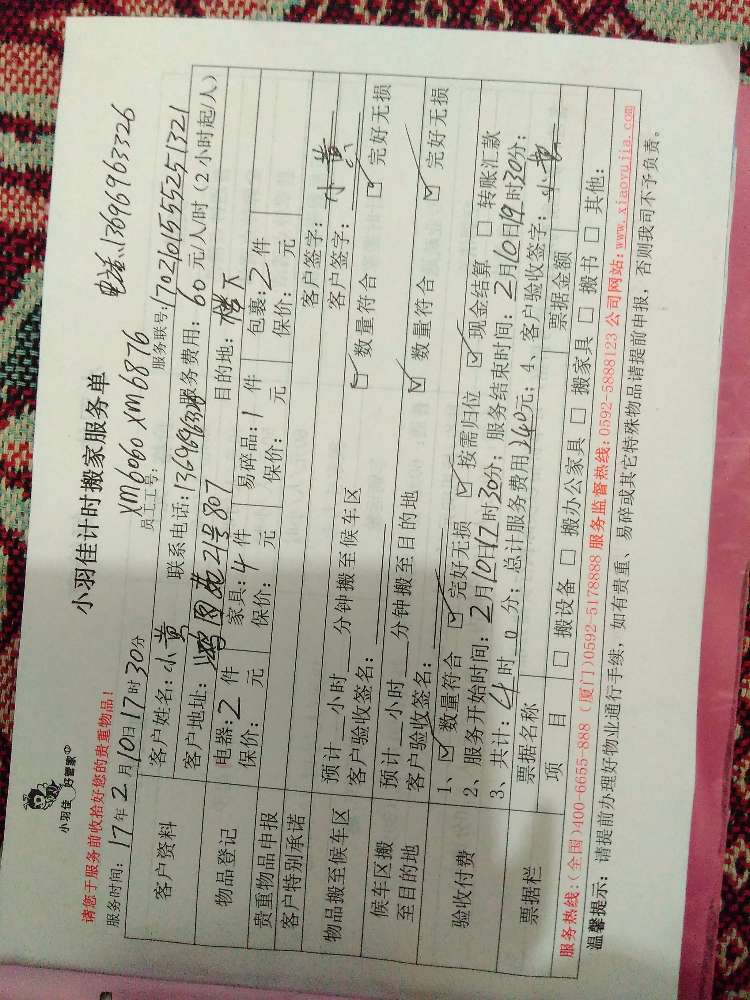 小羽佳 好管家
小羽佳计时搬家服务单
电话:13696963326
请您于服务前收拾好您的贵重物品!
XM6060 XM6876
服务时间: 17年2月10日17时30分
员工工号:
服务联号: 1702101555251321
客户资料
客户姓名: 小黄 联系电话: 服务费用: 60元/人/时(2小时起/人)
客户地址: 21号807 目的地: 楼下
物品登记
电器: 2件 家具: 4件 易碎品: 1件 包裹: 2件
贵重物品申报
保价: 元 保价: 元 保价: 元 保价: 元
客户特别承诺
物品搬至候车区
预计__小时__分钟搬至候车区 客户签字: 小黄
客户验收签名: ☑数量符合 ☑完好无损
候车区搬至目的地
预计__小时__分钟搬至目的地 客户签字:
客户验收签名: ☑数量符合 ☑完好无损
验收付费
1、☑数量符合 ☑完好无损 ☑按需归位 ☑现金结算 □转账汇款
2、服务开始时间: 2月10日17时30分; 服务结束时间: 2月10日19时30分;
3、共计: 4时0分; 总计服务费用240元; 4、客户验收签字: 小黄
票据栏
票据名称 票据金额
项目 □搬设备 □搬办公家具 □搬家具 □搬书 □其他:
服务热线:(全国)400-6655-888 (厦门)0592-5178888 服务监督热线:0592-5888123 公司网站:www.xiaoyujia.com
温馨提示: 请提前办理好物业通行手续, 如有贵重、易碎或其它特殊物品请提前申报, 否则我司不予负责。